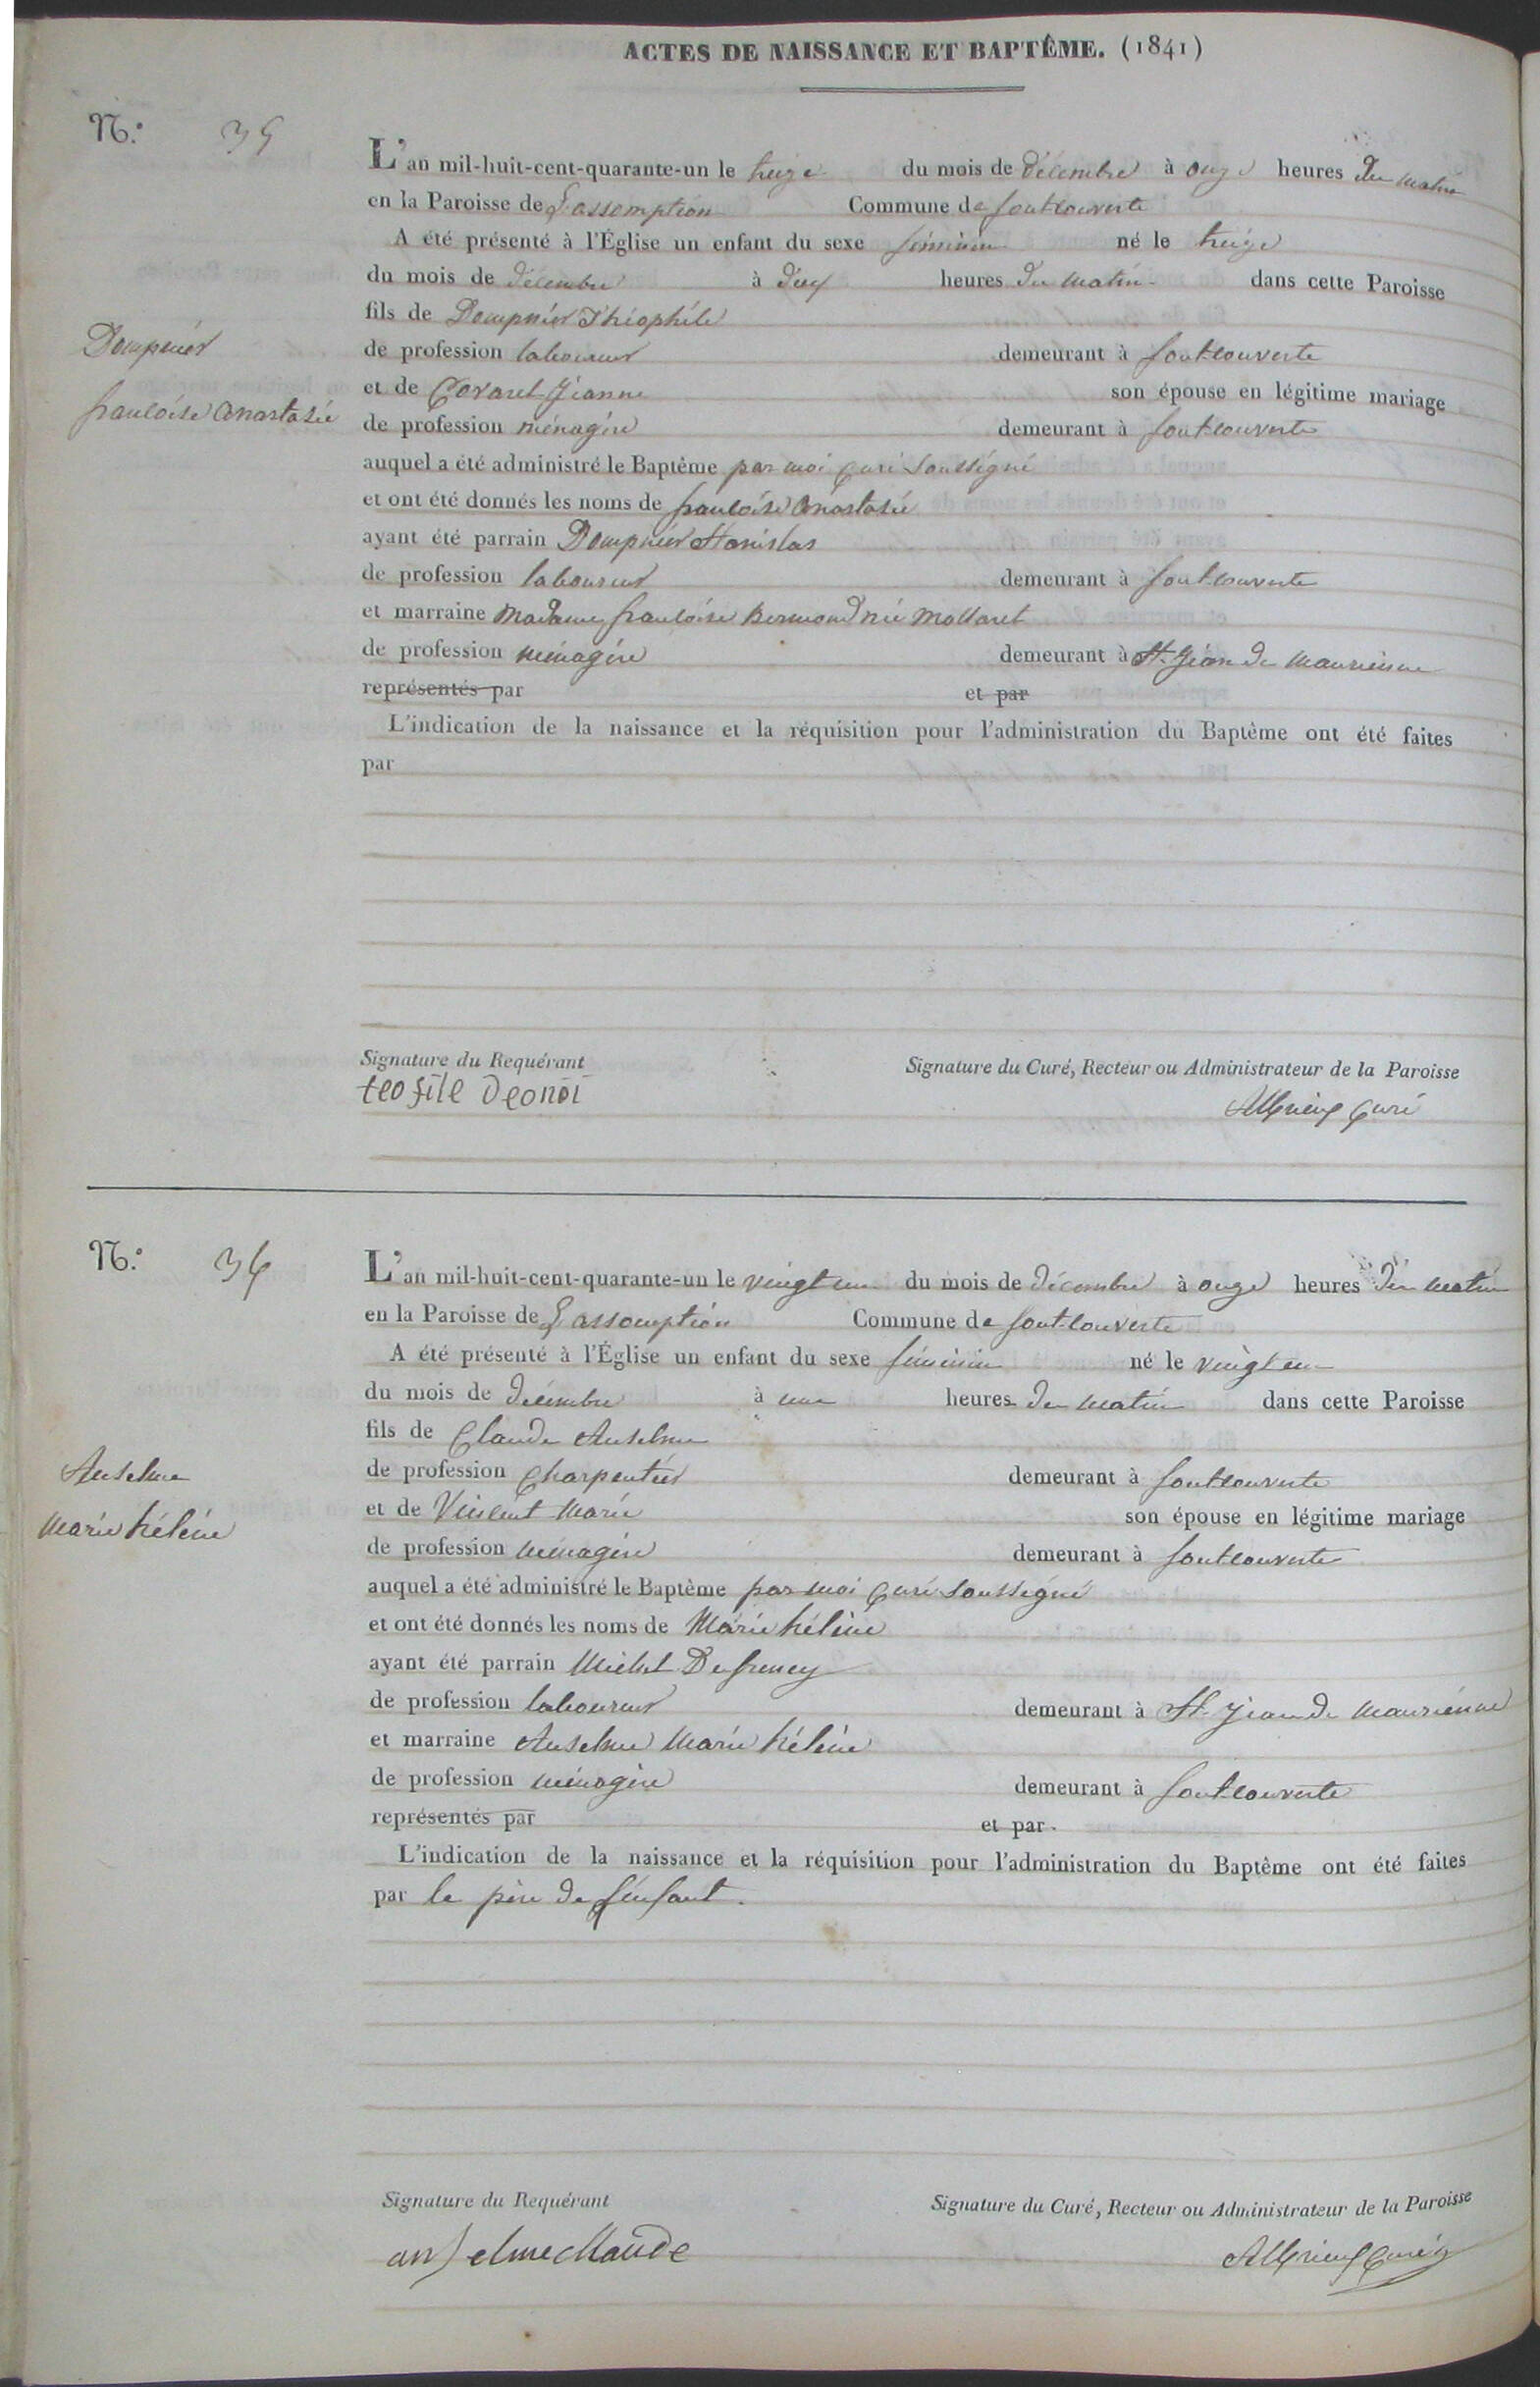 ACTES DE NAISSANCE ET BAPTÊME. (1841)
N.° 35
L'an mil-huit-cent-quarante-un le treize du mois de décembre à onze heures du matin
en la Paroisse de L'assomption Commune de fontcouverte
A été présenté à l'Église un enfant du sexe féminin né le treize
du mois de décembre à dix heures du matin dans cette Paroisse
fils de Dompnier Théophile
Dompnier
de profession laboureur demeurant à fontcouverte
et de Covarel Jeanne son épouse en légitime mariage
françoise Anastasie
de profession ménagère demeurant à fontcouverte
auquel a été administré le Baptême par moi curé soussigné
et ont été donnés les noms de françoise Anastasie
ayant été parrain Dompnier Stanislas
de profession laboureur demeurant à fontcouverte
et marraine Madame françoise Bermond née Mollaret
de profession ménagère demeurant à St. Jean de Maurienne
représentés par et par
L'indication de la naissance et la réquisition pour l'administration du Baptême ont été faites
par
Signature du Requérant Signature du Curé, Recteur ou Administrateur de la Paroisse
teofile curé
N.° 36
L'an mil-huit-cent-quarante-un le vingt un du mois de décembre à onze heures du matin
en la Paroisse de L'assomption Commune de fontcouverte
A été présenté à l'Église un enfant du sexe féminin né le vingt un
du mois de décembre à une heures du matin dans cette Paroisse
fils de Claude Anselme
Anselme
de profession Charpentier demeurant à fontcouverte
et de Vincent Marie son épouse en légitime mariage
Marie hélène
de profession ménagère demeurant à fontcouverte
auquel a été administré le Baptême par moi curé soussigné
et ont été donnés les noms de Marie hélène
ayant été parrain Michel Dufreney
de profession laboureur demeurant à St. Jean de Maurienne
et marraine Anselme Marie hélène
de profession ménagère demeurant à fontcouverte
représentés par et par
L'indication de la naissance et la réquisition pour l'administration du Baptême ont été faites
par le père de l'enfant.
Signature du Requérant Signature du Curé, Recteur ou Administrateur de la Paroisse
anselme claude curé